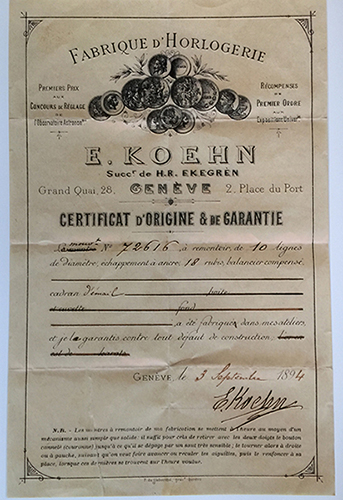 FABRIQUE D'HORLOGERIE
PREMIERS PRIX
AUX
CONCOURS DE RÉGLAGE
DE
l'Observatoire Astronom^que
RÉCOMPENSES
DE
PREMIER ORDRE
AUX
Expositions Univer^lles
E. KOEHN
Succ^r de H.R. EKEGRÈN
Grand Quai, 28. GENÈVE 2, Place du Port
CERTIFICAT D'ORIGINE & DE GARANTIE
N° 72616, à remontoir, de 10 lignes
de diamètre, échappement à ancre, 18 rubis, balancier compensé,
cadran d'émail boîte
et cuvette fond
a été fabriqué dans mes ateliers,
et je la garantis contre tout défaut de construction,
GENÈVE, le 3 Septembre 1894
E. Koehn
N.B. - Les montres à remontoir de ma fabrication se mettent à l'heure au moyen d'un
mécanisme aussi simple que solide: il suffit pour cela de retirer avec les deux doigts le bouton
cannelé (couronne) jusqu'à ce qu'il se dégage par son saut très sensible; le tourner alors à droite
ou à gauche, suivant qu'on veut faire avancer ou reculer les aiguilles, puis le renfoncer à sa
place, lorsque ces dernières se trouvent sur l'heure voulue.